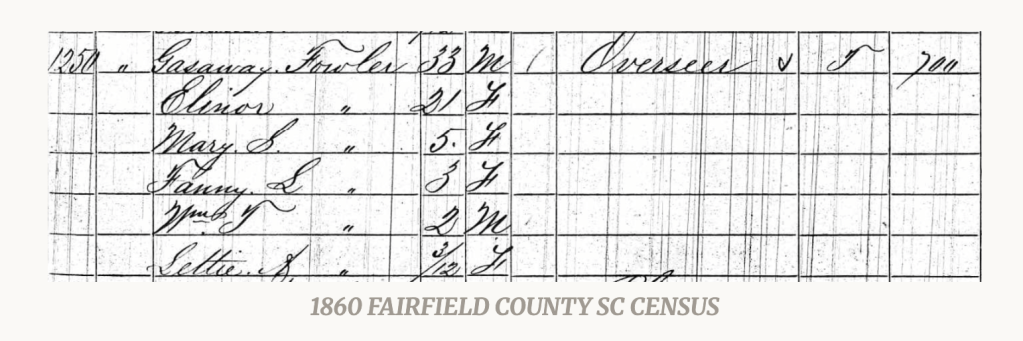 1250 " Gasaway. Fowler 33 M / Overseer & T 700
Elinor " 21 F
Mary. S. " 5. F
Fanny. L " 3 F
Wm. T " 2 M
Lettie. A " 3/12 F
1860 FAIRFIELD COUNTY SC CENSUS